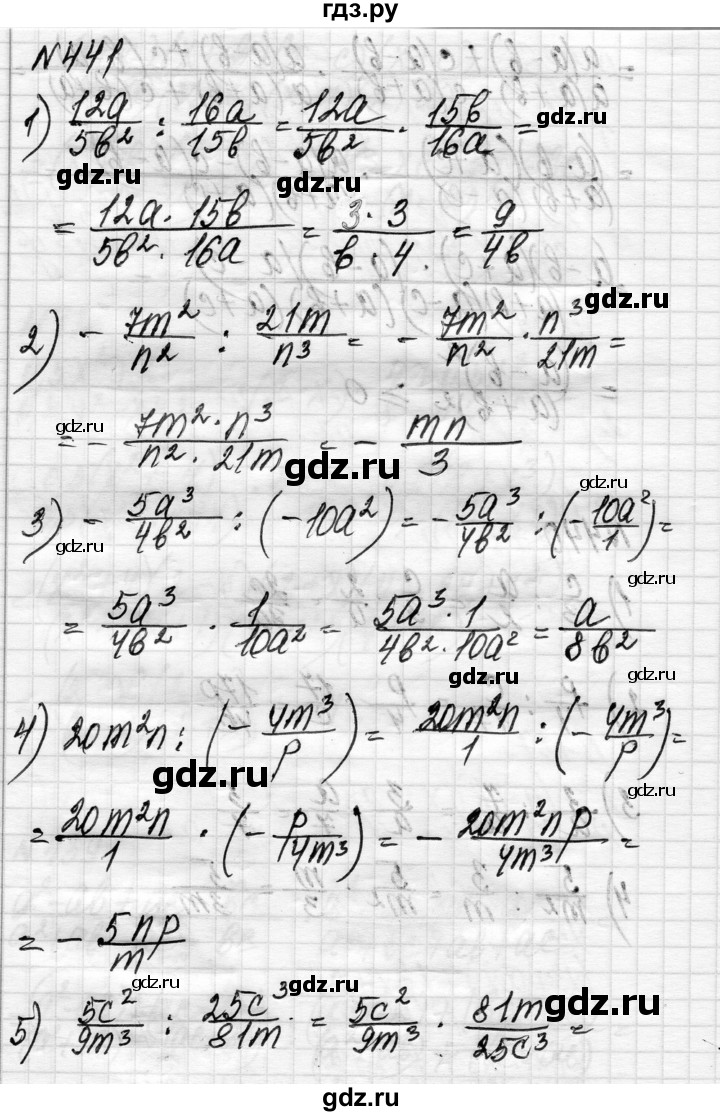 гдз.ру
№441
1) 12a/5b² : 16a/15b = 12a/5b² · 15b/16a =
gdz.ru
gdz.ru
gdz.ru
= 12a · 15b / 5b² · 16a = 3 · 3 / b · 4 = 9/4b
gdz.ru
2) - 7m²/n² : 21m/n³ = - 7m²/n² · n³/21m =
gdz.ru
= - 7m² · n³ / n² · 21m = - mn/3
gdz.ru
gdz.ru
3) - 5a³/4b² : (-10a²) = - 5a³/4b² : (- 10a²/1) =
gdz.ru
gdz.ru
gdz.ru
= 5a³/4b² · 1/10a² = 5a³ · 1 / 4b² · 10a² = a/8b²
gdz.ru
gdz.ru
4) 20m²n : (- 4m³/p) = 20m²n/1 : (- 4m³/p) =
gdz.ru
= 20m²n/1 · (- p/4m³) = - 20m²np/4m³ =
gdz.ru
gdz.ru
= - 5np/m
gdz.ru
gdz.ru
5) 5c²/9m³ : 25c³/81m = 5c²/9m³ · 81m/25c³ =
gdz.ru
gdz.ru
gdz.ru